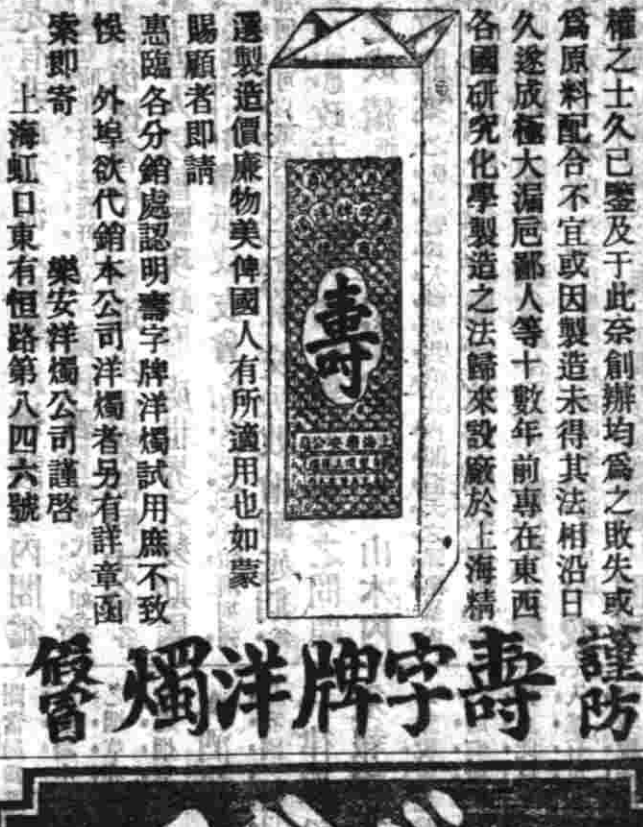 權之士久已鑒及于此奈創辦均爲之敗失或
爲原料配合不宜或因製造未得其法相沿日
久遂成極大漏巵鄙人等十數年前專在東西
各國研究化學製造之法歸來設廠於上海精
選製造價廉物美俾國人有所適用也如蒙
賜顧者即請
惠臨各分銷處認明壽字牌洋燭試用庶不致
悞　外埠欲代銷本公司洋燭者另有詳章函
索即寄　　　　　樂安洋燭公司謹啓
上海虹口東有恒路第八四六號
壽
謹防
壽字牌洋燭
假冒